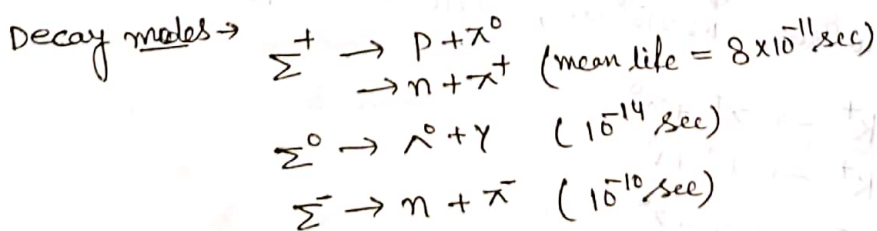 Decay modes → Σ⁺ → P + π⁰
→ n + π⁺ (mean life = 8×10⁻¹¹ sec)
Σ⁰ → Λ⁰ + γ (10⁻¹⁴ sec)
Σ⁻ → n + π⁻ (10⁻¹⁰ sec)